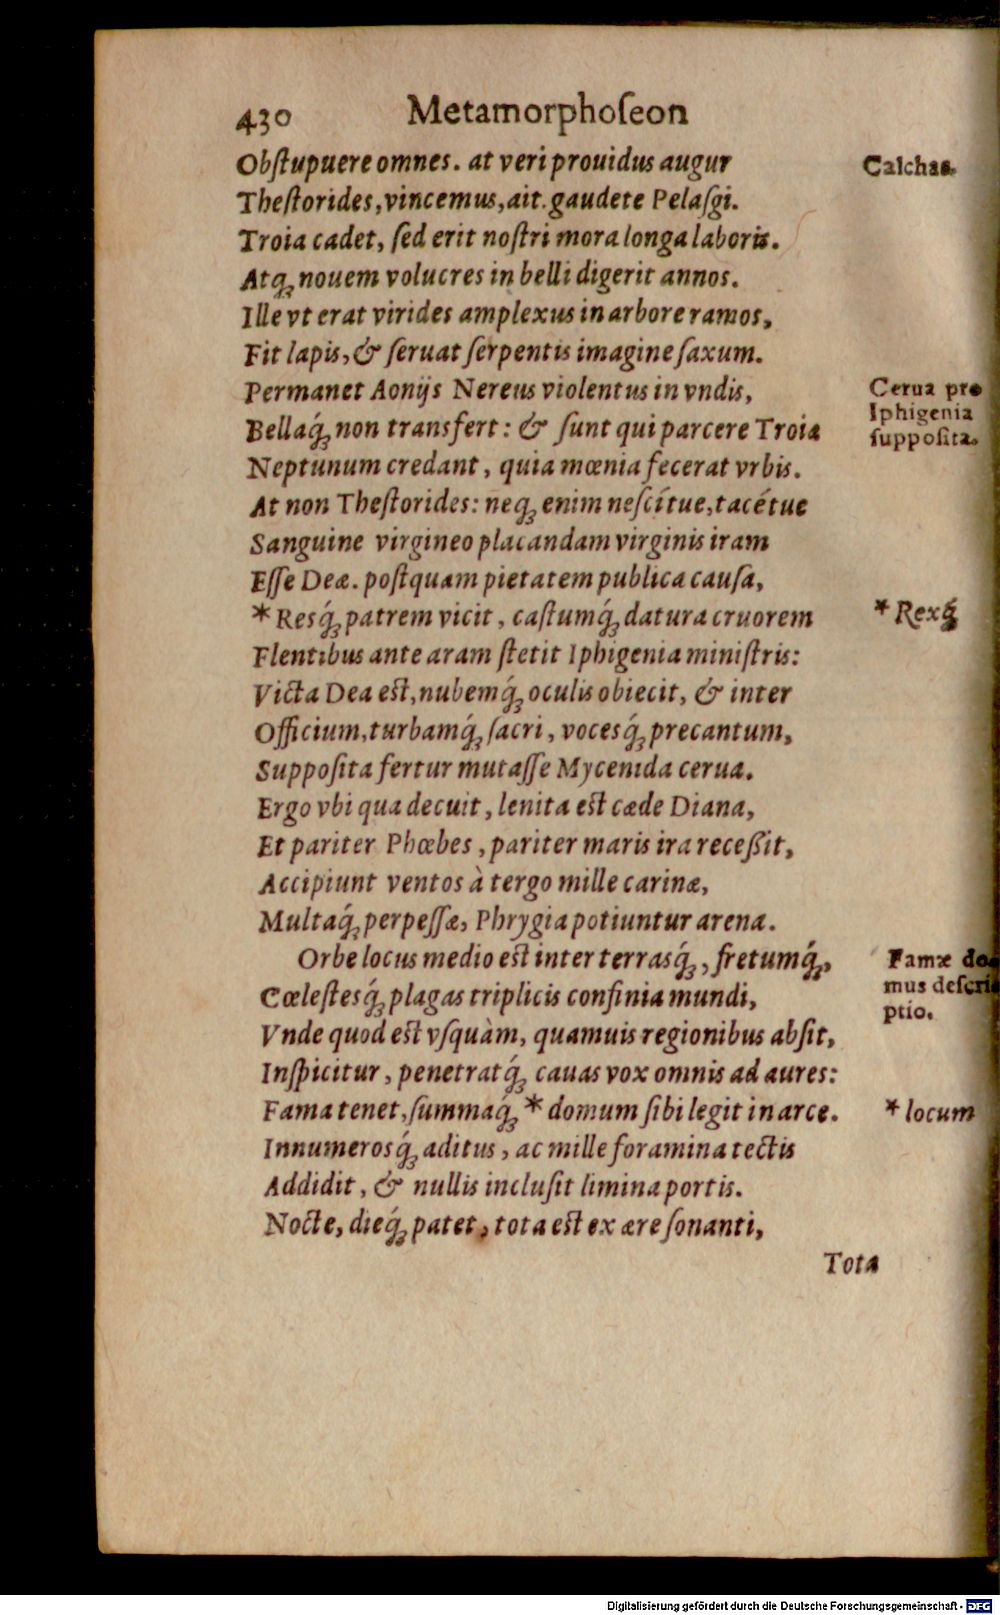 430 Metamorphoſeon
Obſtupuere omnes. at veri prouidus augur
Calchas.
Theſtorides, vincemus, ait. gaudete Pelaſgi.
Troia cadet, ſed erit noſtri mora longa laboris.
Atq́ꝫ nouem volucres in belli digerit annos.
Ille vt erat virides amplexus in arbore ramos,
Fit lapis, & ſeruat ſerpentis imagine ſaxum.
Permanet Aonijs Nereus violentus in vndis,
Cerua pro
Iphigenia
ſuppoſita.
Bellaq́ꝫ non transfert: & ſunt qui parcere Troia
Neptunum credant, quia mœnia fecerat vrbis.
At non Theſtorides: neqꝫ enim neſcítue, tacétue
Sanguine virgineo placandam virginis iram
Eſſe Deæ. poſtquam pietatem publica cauſa,
*Resq́ꝫ patrem vicit, caſtumq́ꝫ datura cruorem
*Rexq́ꝫ
Flentibus ante aram ſtetit Iphigenia miniſtris:
Victa Dea eſt, nubemq́ꝫ oculis obiecit, & inter
Officium, turbamq́ꝫ ſacri, vocesq́ꝫ precantum,
Suppoſita fertur mutaſſe Mycenida cerua.
Ergo vbi qua decuit, lenita eſt cæde Diana,
Et pariter Phœbes, pariter maris ira receßit,
Accipiunt ventos à tergo mille carinæ,
Multaq́ꝫ perpeſſæ, Phrygia potiuntur arena.
Orbe locus medio eſt inter terrasq́ꝫ, fretumq́ꝫ,
Famæ do
mus deſcri
ptio.
Cœleſtesq́ꝫ plagas triplicis confinia mundi,
Vnde quod eſt vſquàm, quamuis regionibus abſit,
Inſpicitur, penetratq́ꝫ cauas vox omnis ad aures:
Fama tenet, ſummaq́ꝫ * domum ſibi legit in arce.
* locum
Innumerosq́ꝫ aditus, ac mille foramina tectis
Addidit, & nullis incluſit limina portis.
Nocte, dieq́ꝫ patet, tota eſt ex ære ſonanti,
Tota
Digitalisierung gefördert durch die Deutsche Forschungsgemeinschaft - DFG